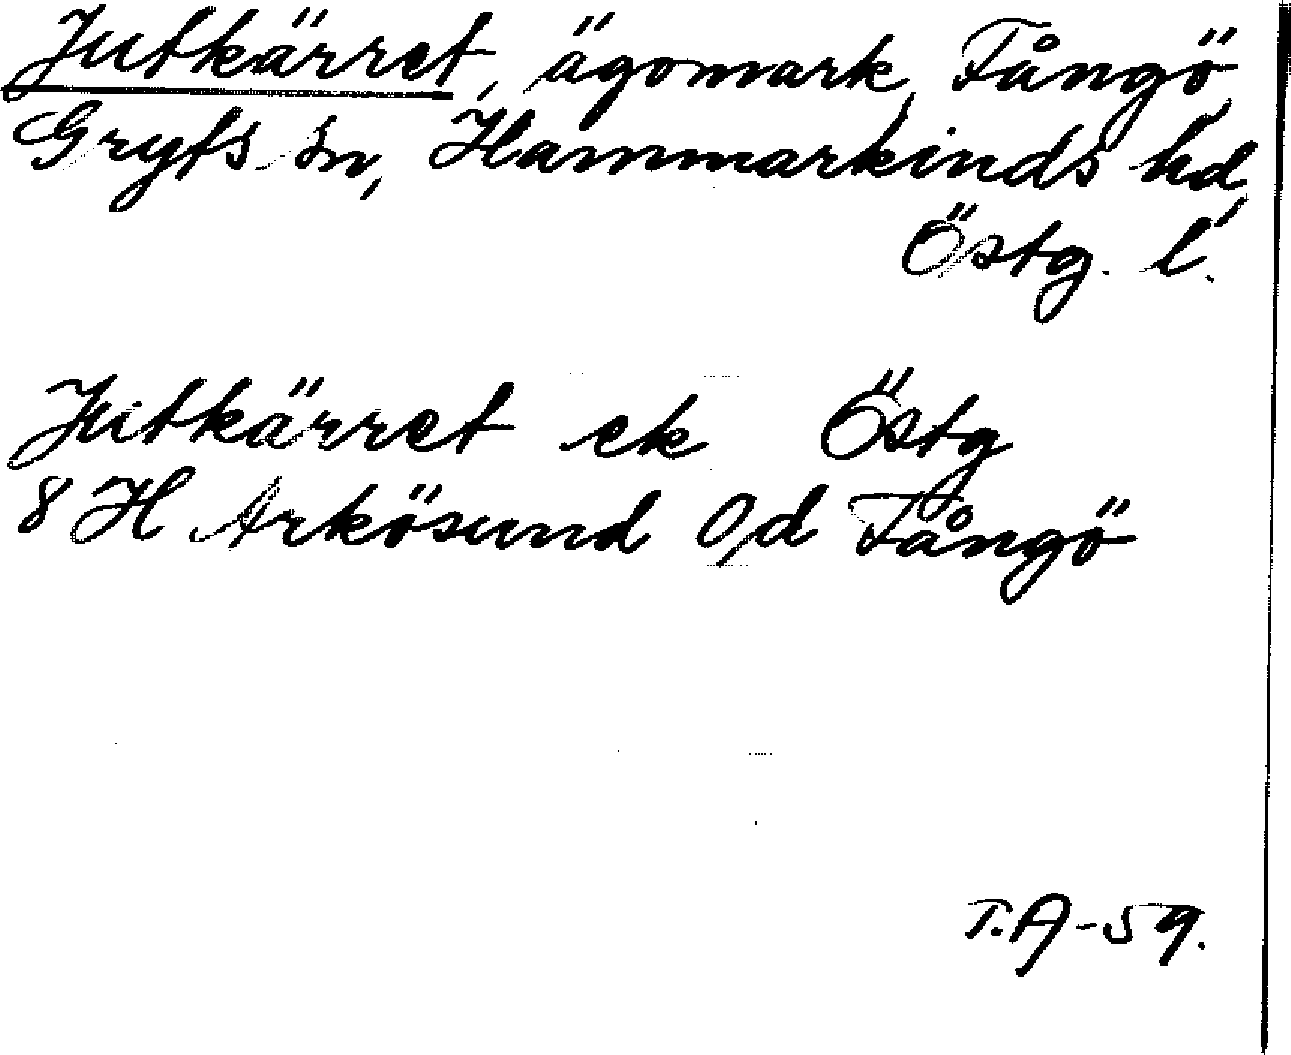 Jutkärret, ägomark, Fångö
Gryts sn, Hammarkinds hd,
Östg. l.
Jutkärret ek Östg
8 H Arkösund O,d Fångö
T.A-59.